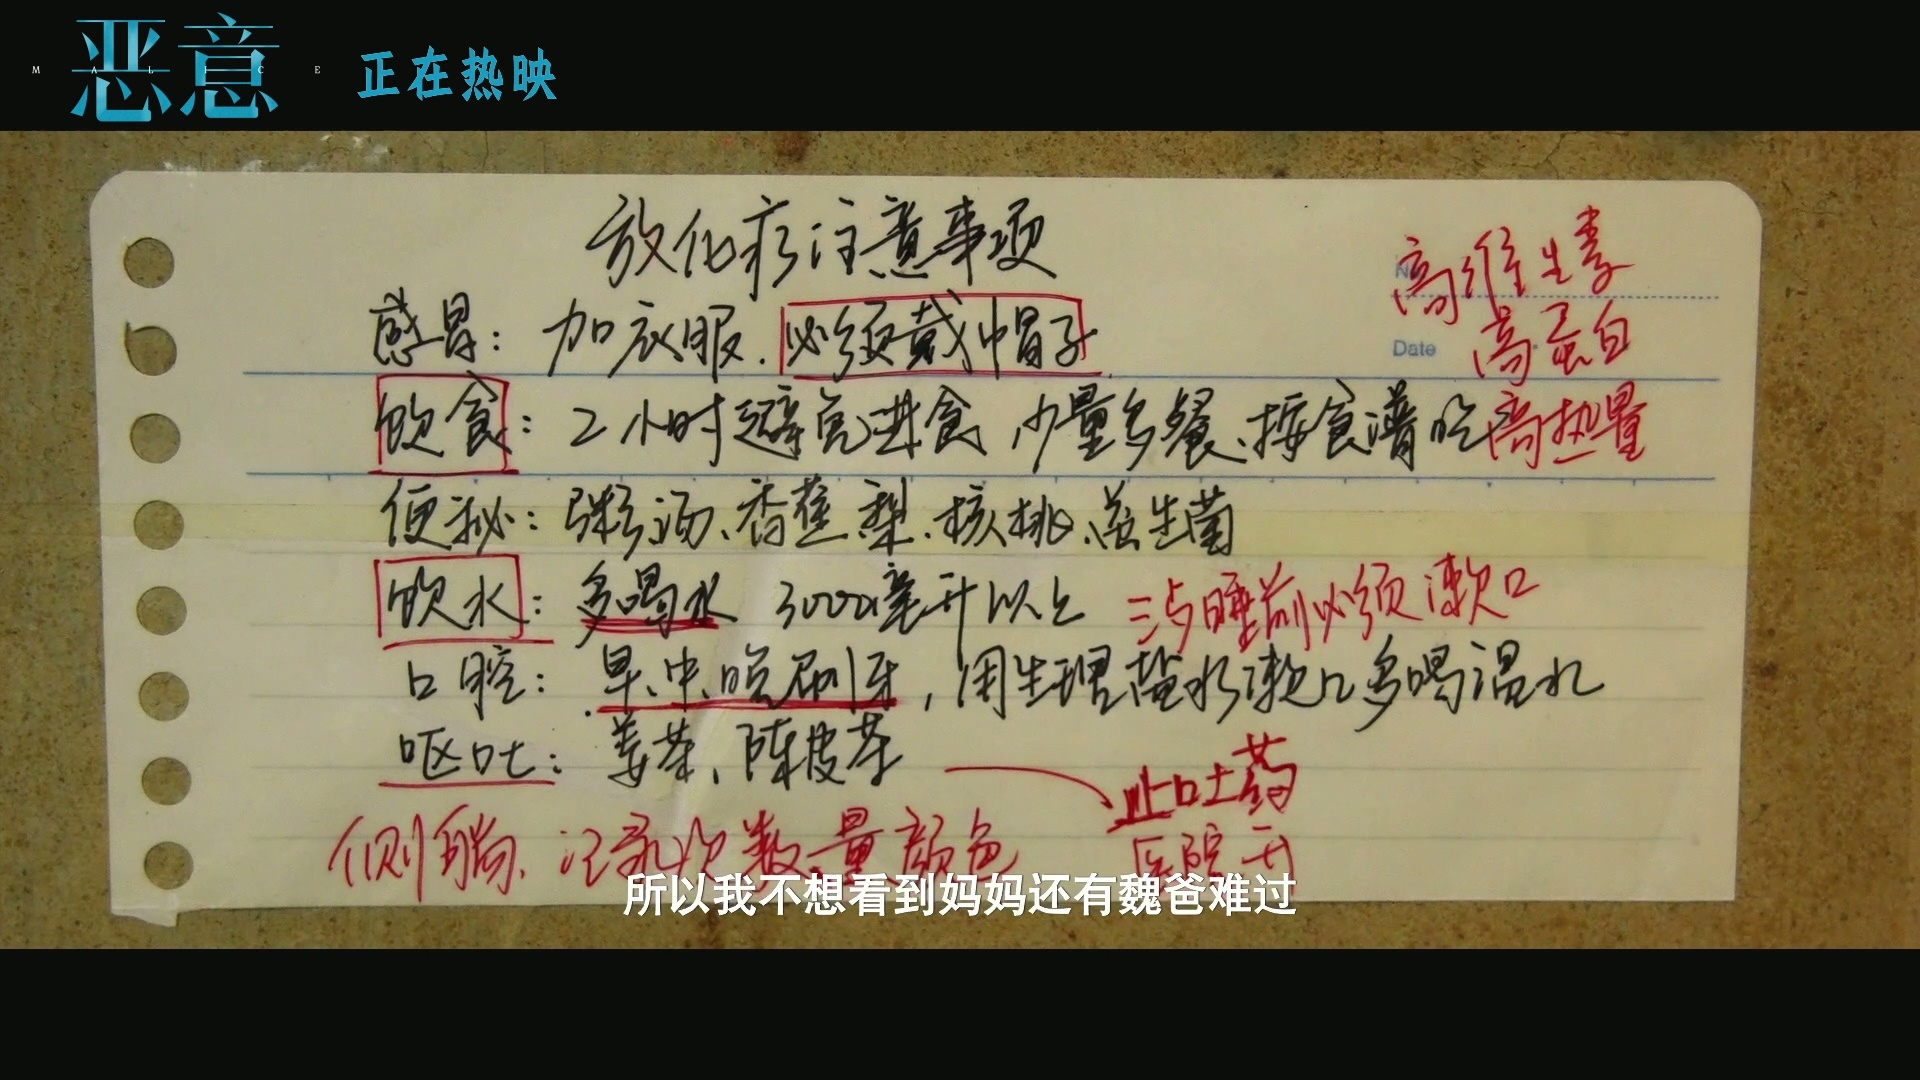 恶意
MALICE
正在热映
放化疗注意事项
感冒：加衣服、必须戴帽子
高维生素
高蛋白
高热量
No
Date
饮食：2小时避免进食，少量多餐、按食谱吃
便秘：粥汤、香蕉、梨、核桃、益生菌
饮水：多喝水 3000毫升以上
与睡前必须漱口
口腔：早、中、晚刷牙，用生理盐水漱口多喝温水
呕吐：姜茶、陈皮茶
止吐药
医院开
侧躺、记录次数量颜色
所以我不想看到妈妈还有魏爸难过